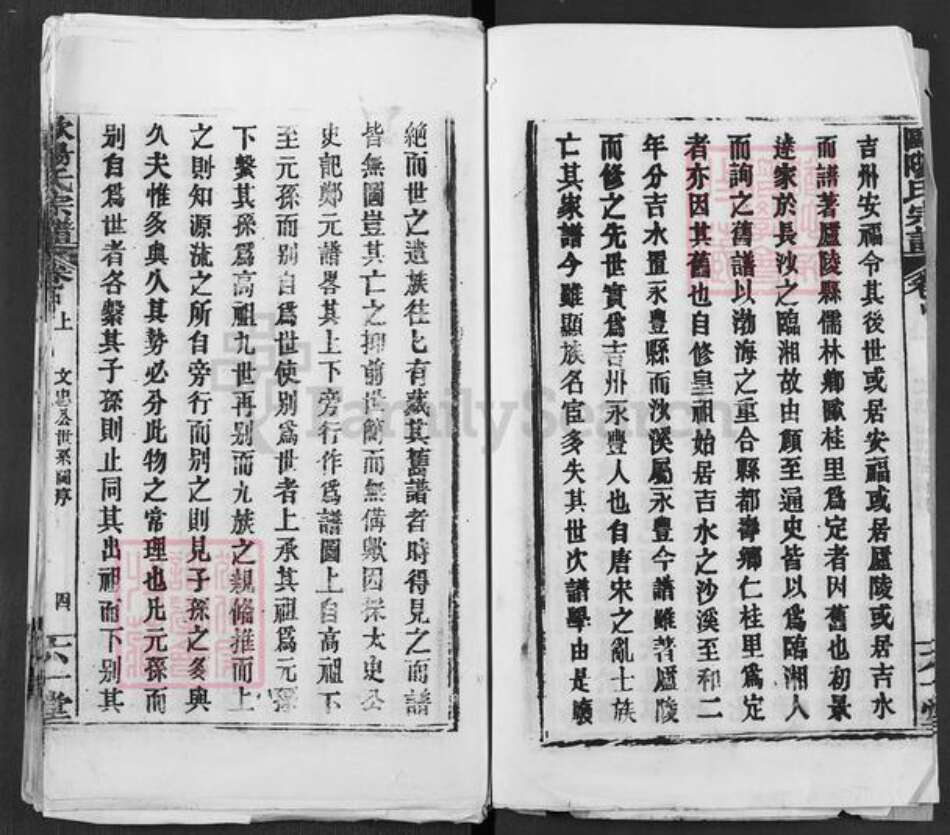 吉州安福令其後世或居安福或居廬陵或居吉水
而譜著廬陵縣儒林鄉歐桂里爲定者因舊也初景
達家於長沙之臨湘故由頠至通史皆以爲臨湘人
而詢之舊譜以渤海之重合縣都鄉仁桂里爲定
者亦因其舊也自修皇祖始居吉水之沙溪至和二
年分吉水置永豐縣而沙溪屬永豐今譜雖著廬陵
而修之先世實爲吉州永豐人也自唐宋之亂士族
亡其家譜今雖顯族名宦多失其世次譜學由是
絶而世之遺族往匕有藏其舊譜者時得見之而譜
皆無圖豈其亡之抑前世簡而無備歟因采太史公
史記鄭元譜畧其上下旁行作爲譜圖上自高祖下
至元孫而別自爲世使別爲世者上承其祖爲元孫
下繫其孫爲高祖九世再別而九族之親備推而上
之則知源流之所自旁行而別之則見子孫之多與
久夫惟多與久其勢必分此物之常理也凡元孫而
別自爲世者各繫其子孫則止同其出祖而下別其
歐陽氏宗譜 卷 上 文忠公世系圖序 四 六一堂
FamilySearch